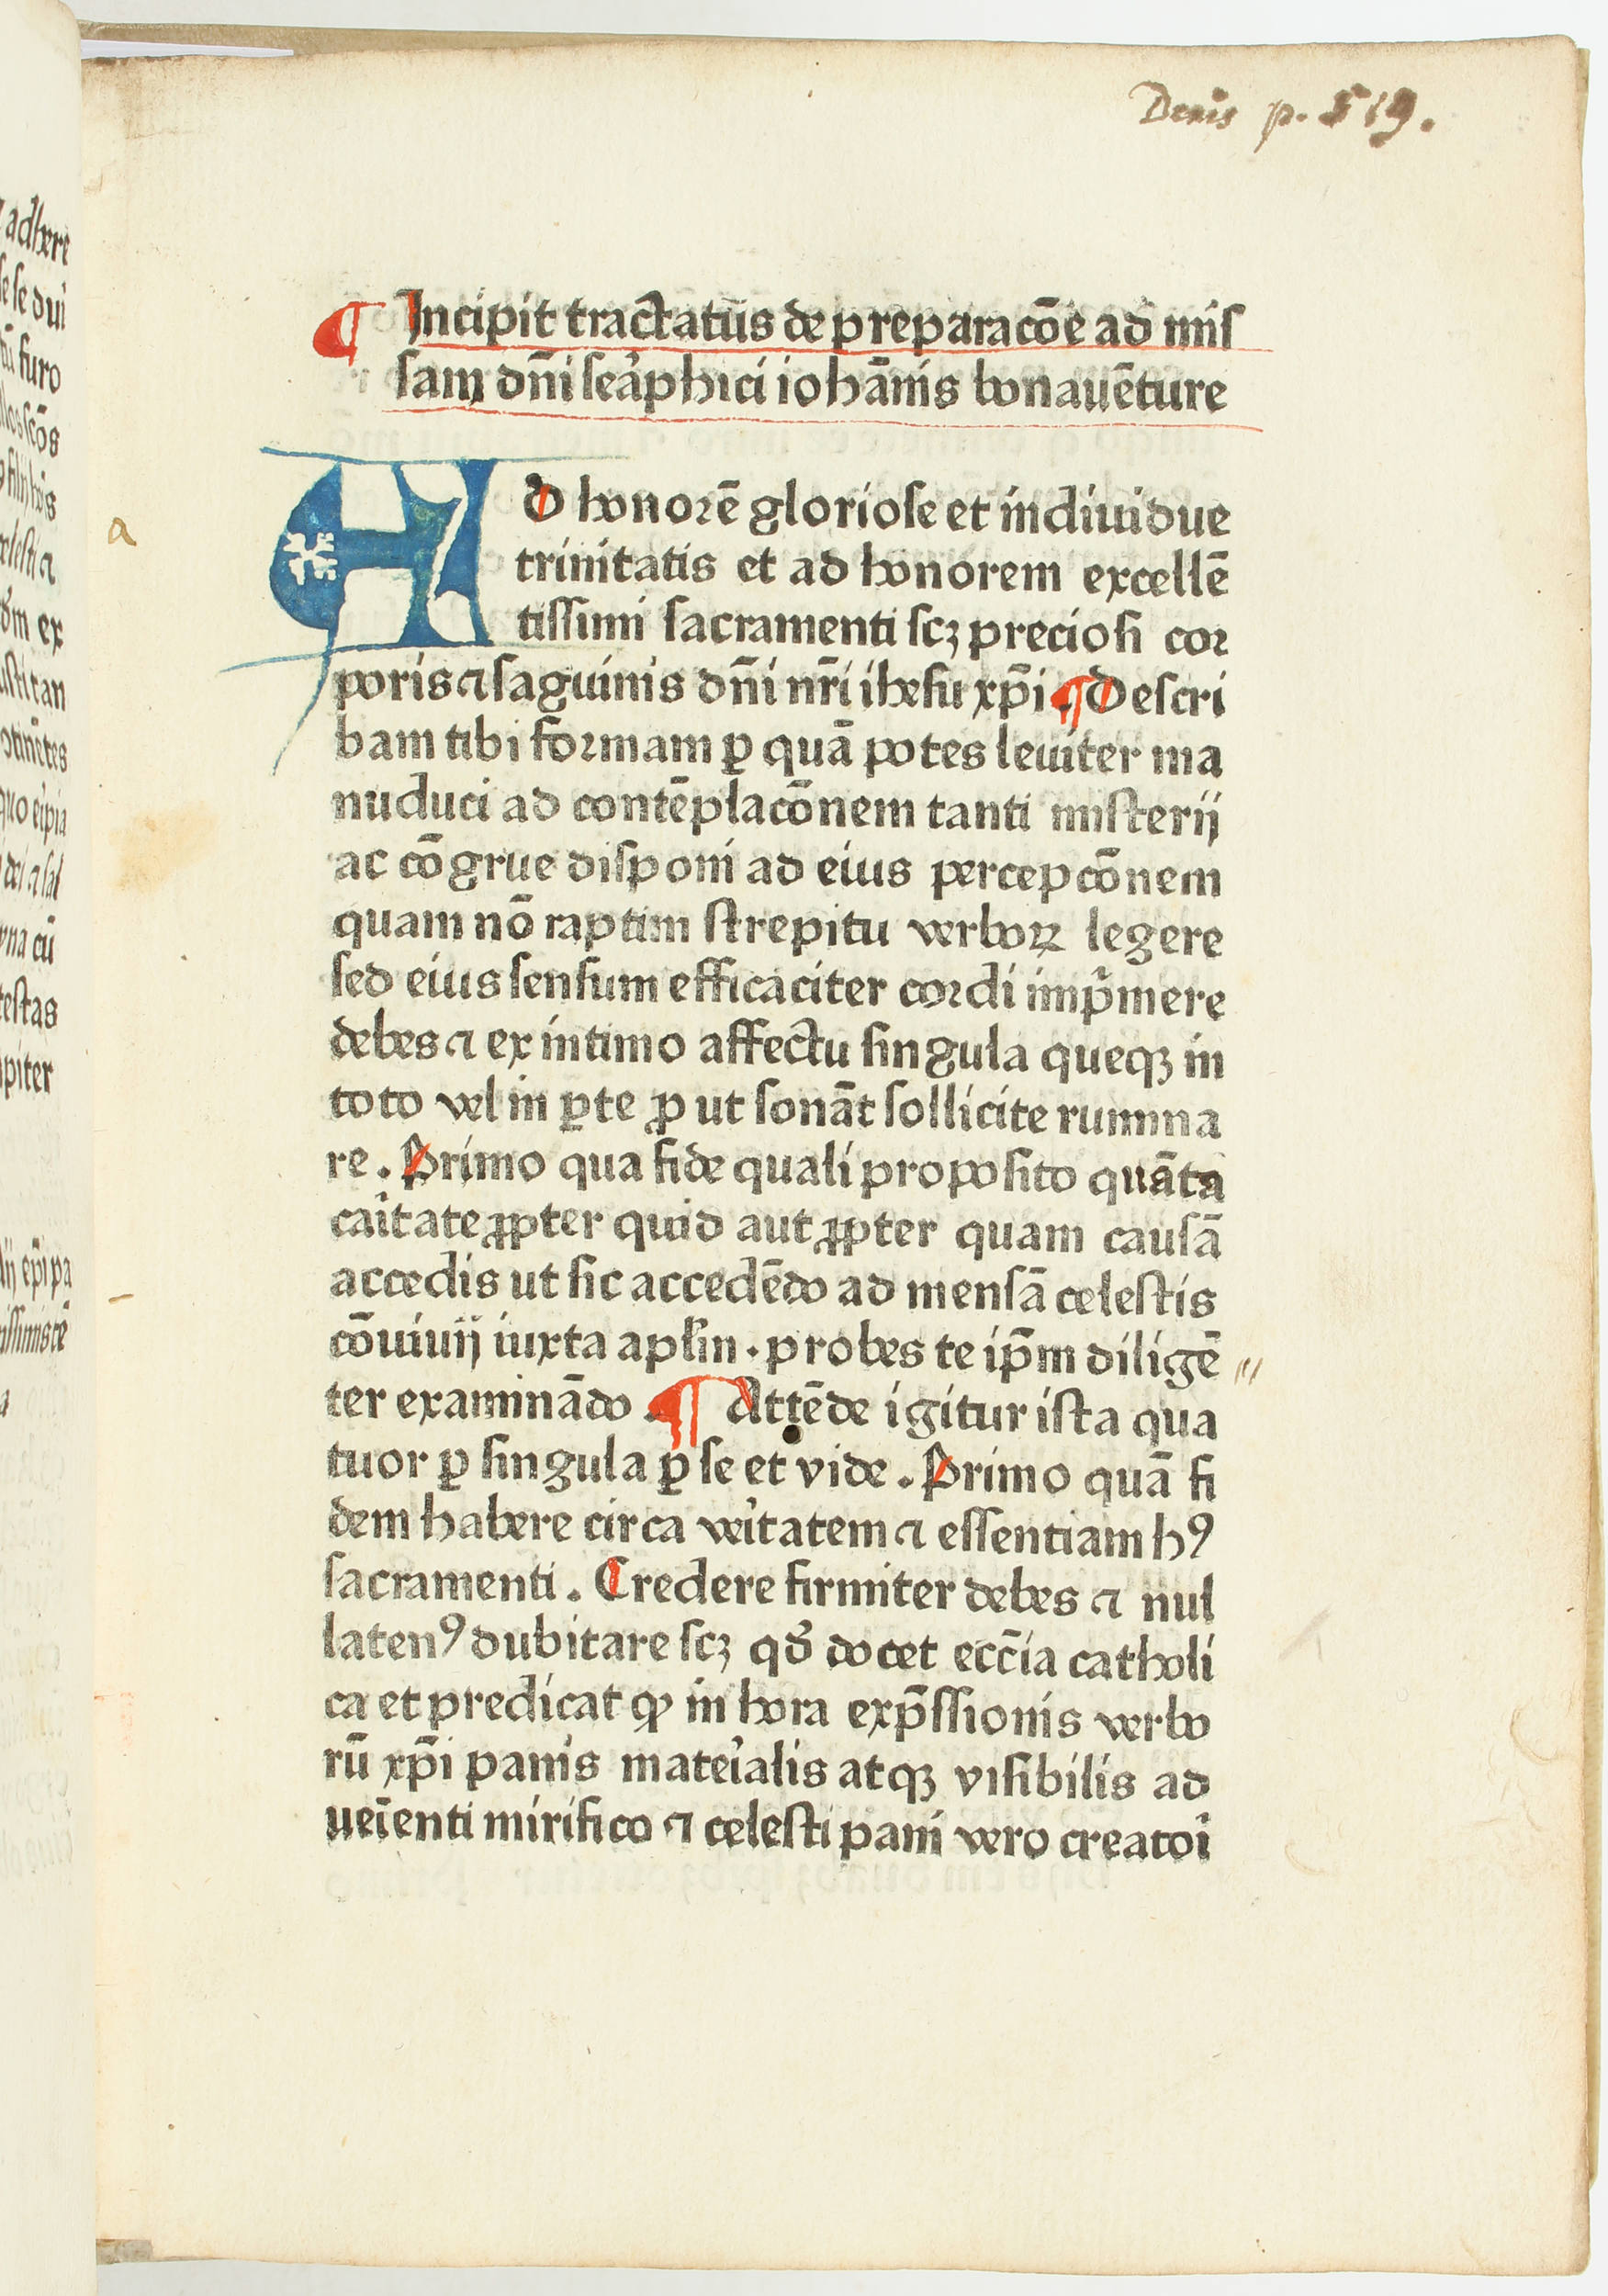 Denis p. 519.
adhere
se se dui
furo
ex
vna cū
testas
piter
¶ Incipit tractatus de preparacōe ad mis
sam dn̄i seaphici iohānis bonauēture
AD honorē gloriose et indiuidue
trinitatis et ad honorem excellē
tissimi sacramenti scꝫ preciosi cor
poris ⁊ saguinis dn̄i nr̄i ihesu xp̄i . ¶ Descri
bam tibi formam ꝑ quā potes leuiter ma
nuduci ad contēplacōnem tanti misterij
ac cōgrue disponi ad eius percepcōnem
quam nō raptim strepitu verboꝝ legere
sed eius sensum efficaciter cordi impͥmere
debes ⁊ ex intimo affectu singula queqꝫ in
toto vel in ꝑte ꝓ ut sonāt sollicite rumina
re . Primo qua fide quali proposito quāta
caītate ꝓpter quid aut ꝓpter quam causā
accedis ut sic accedēdo ad mensā celestis
cōuiuij iuxta apl̄m . probes te ip̄m diligē //
ter examinādo . ¶ Attēde igitur ista qua
tuor ꝑ singula ꝑ se et vide . Primo quā fi
dem habere circa veītatem ⁊ essentiam hꝰ
sacramenti . Credere firmiter debes ⁊ nul
latenꝰ dubitare scꝫ qd̄ docet ecc̄ia catholi
ca et predicat ꝙ in hora exp̄ssionis verbo
rū xp̄i panis mateīalis atqꝫ visibilis ad
ueīenti mirifico ⁊ celesti pani vero creatoī
a